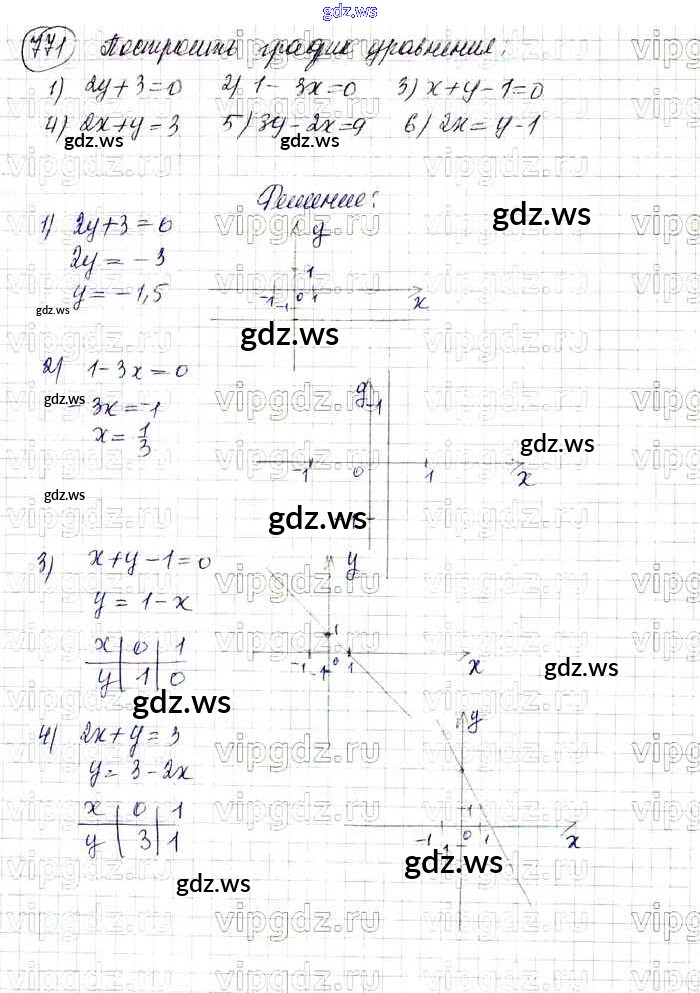 gdz.ws
771 Построить график уравнения:
1) 2y+3=0 2) 1-3x=0 3) x+y-1=0
4) 2x+y=3 5) 3y-2x=9 6) 2x=y-1
gdz.ws gdz.ws
Решение:
gdz.ws
1) 2y+3=0
2y=-3
y=-1,5
y
1
-1 -1 0 1 x
gdz.ws
gdz.ws
2) 1-3x=0
-3x=-1
x=1/3
y
1
-1 0 1 x
gdz.ws
gdz.ws
gdz.ws
gdz.ws
3) x+y-1=0
y=1-x
x 0 1
y 1 0
y
1
-1 -1 0 1 x
gdz.ws
gdz.ws
4) 2x+y=3
y=3-2x
x 0 1
y 3 1
y
1
-1 -1 1 x
gdz.ws
gdz.ws
vipgdz.ru